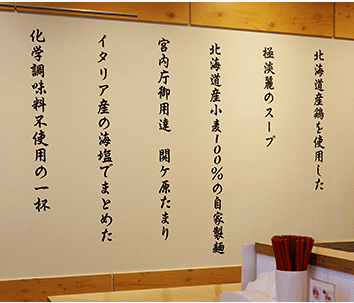 北海道産鶏を使用した
極淡麗のスープ
北海道産小麦100%の自家製麺
宮内庁御用達 関ヶ原たまり
イタリア産の海塩でまとめた
化学調味料不使用の一杯